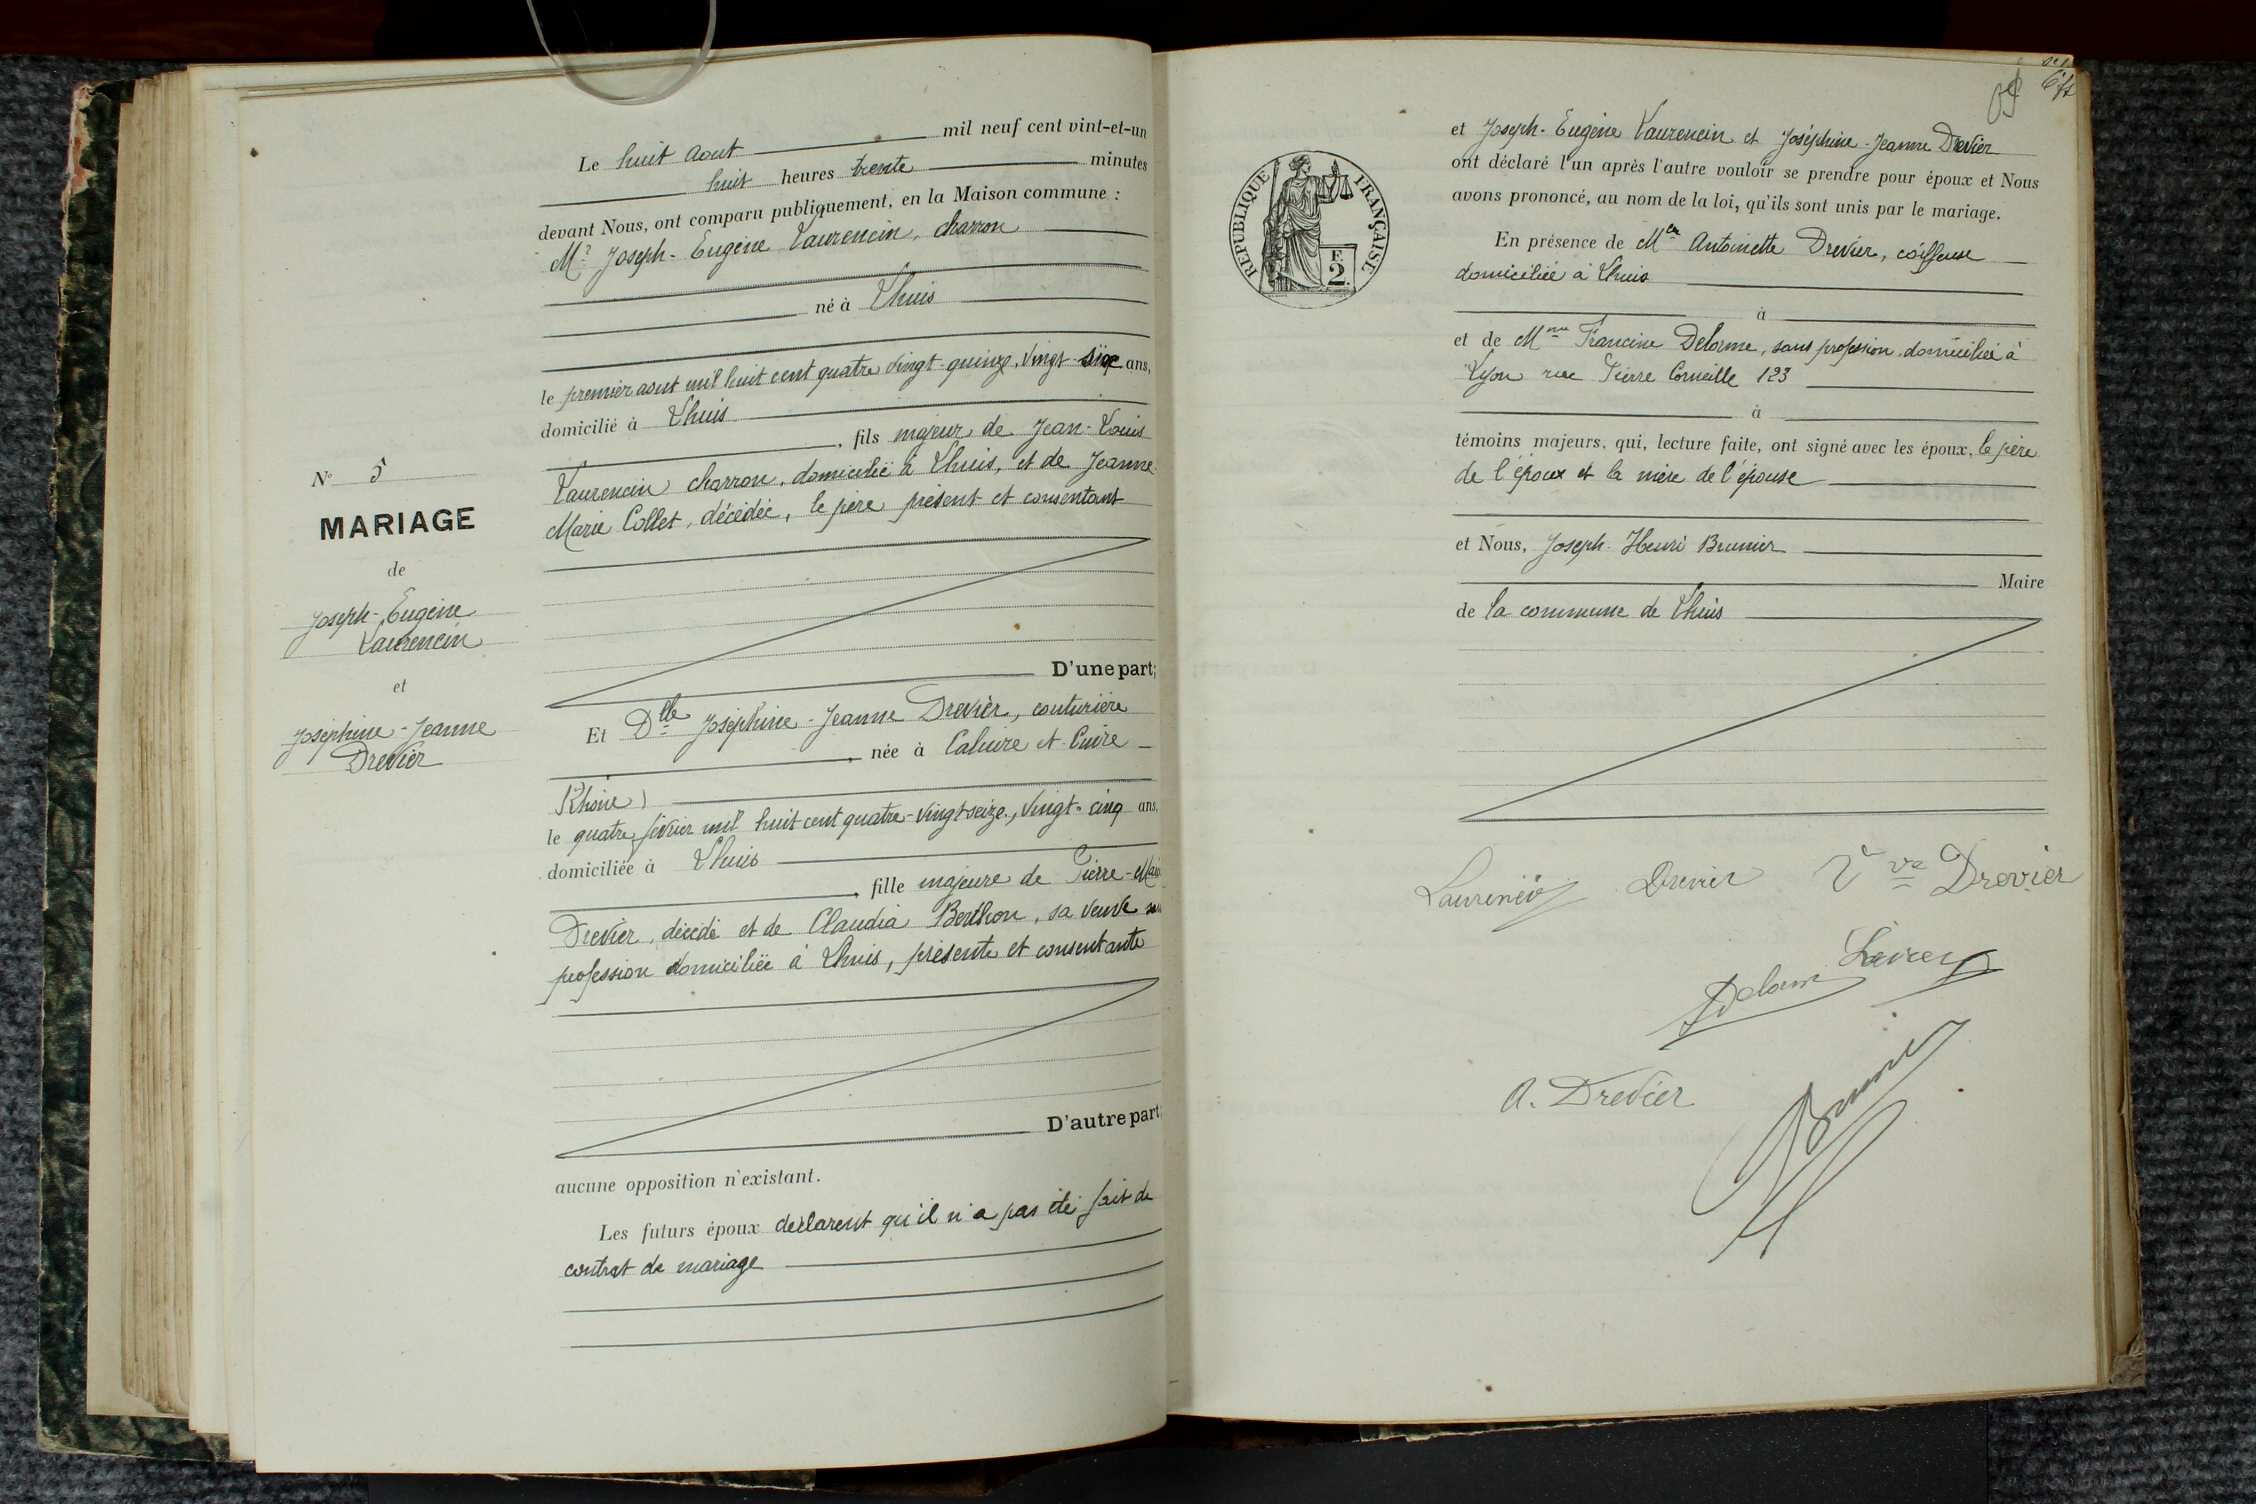 Le huit aout mil neuf cent vint-et-un
huit heures trente minutes
devant Nous, ont comparu publiquement, en la Maison commune :
Mr Joseph-Eugène Laurencin, charron
né à Lhuis
le premier aout mil huit cent quatre vingt-quinze, vingt-six ans,
domicilié à Lhuis
, fils majeur de Jean-Louis
Laurencin charron, domicilié à Lhuis, et de Jeanne
Marie Collet, décédée, le père présent et consentant
D'une part;
N° 5
MARIAGE
de
Joseph-Eugène
Laurencin
et
Joséphine-Jeanne
Drevier
Et Dlle Joséphine-Jeanne Drevier, couturière
, née à Caluire et Cuire
Rhône)
le quatre février mil huit cent quatre-vingt-seize, vingt-cinq ans,
domiciliée à Lhuis
, fille majeure de Pierre-Marie
Drevier, décédé et de Claudia Berthon, sa veuve
profession domiciliée à Lhuis, présente et consentante
D'autre part;
aucune opposition n'existant.
Les futurs époux déclarent qu'il n'a pas été fait de
contrat de mariage
et Joseph-Eugène Laurencin et Joséphine-Jeanne Drevier
ont déclaré l'un après l'autre vouloir se prendre pour époux et Nous
avons prononcé, au nom de la loi, qu'ils sont unis par le mariage.
RÉPUBLIQUE FRANÇAISE
F.
2
En présence de Antoinette Drevier, coiffeuse
domiciliée à Lhuis
à
et de Mme Francine Delorme, sans profession, domiciliée à
Lyon rue Pierre Corneille 123
à
témoins majeurs, qui, lecture faite, ont signé avec les époux, le père
de l'époux et la mère de l'épouse
et Nous, Joseph-Henri Brunier
Maire
de la commune de Lhuis
Laurencin Drevier Vve Drevier
Delorme
A. Drevier
Brunier